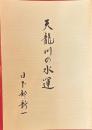 天龍川の水運
日下部新一